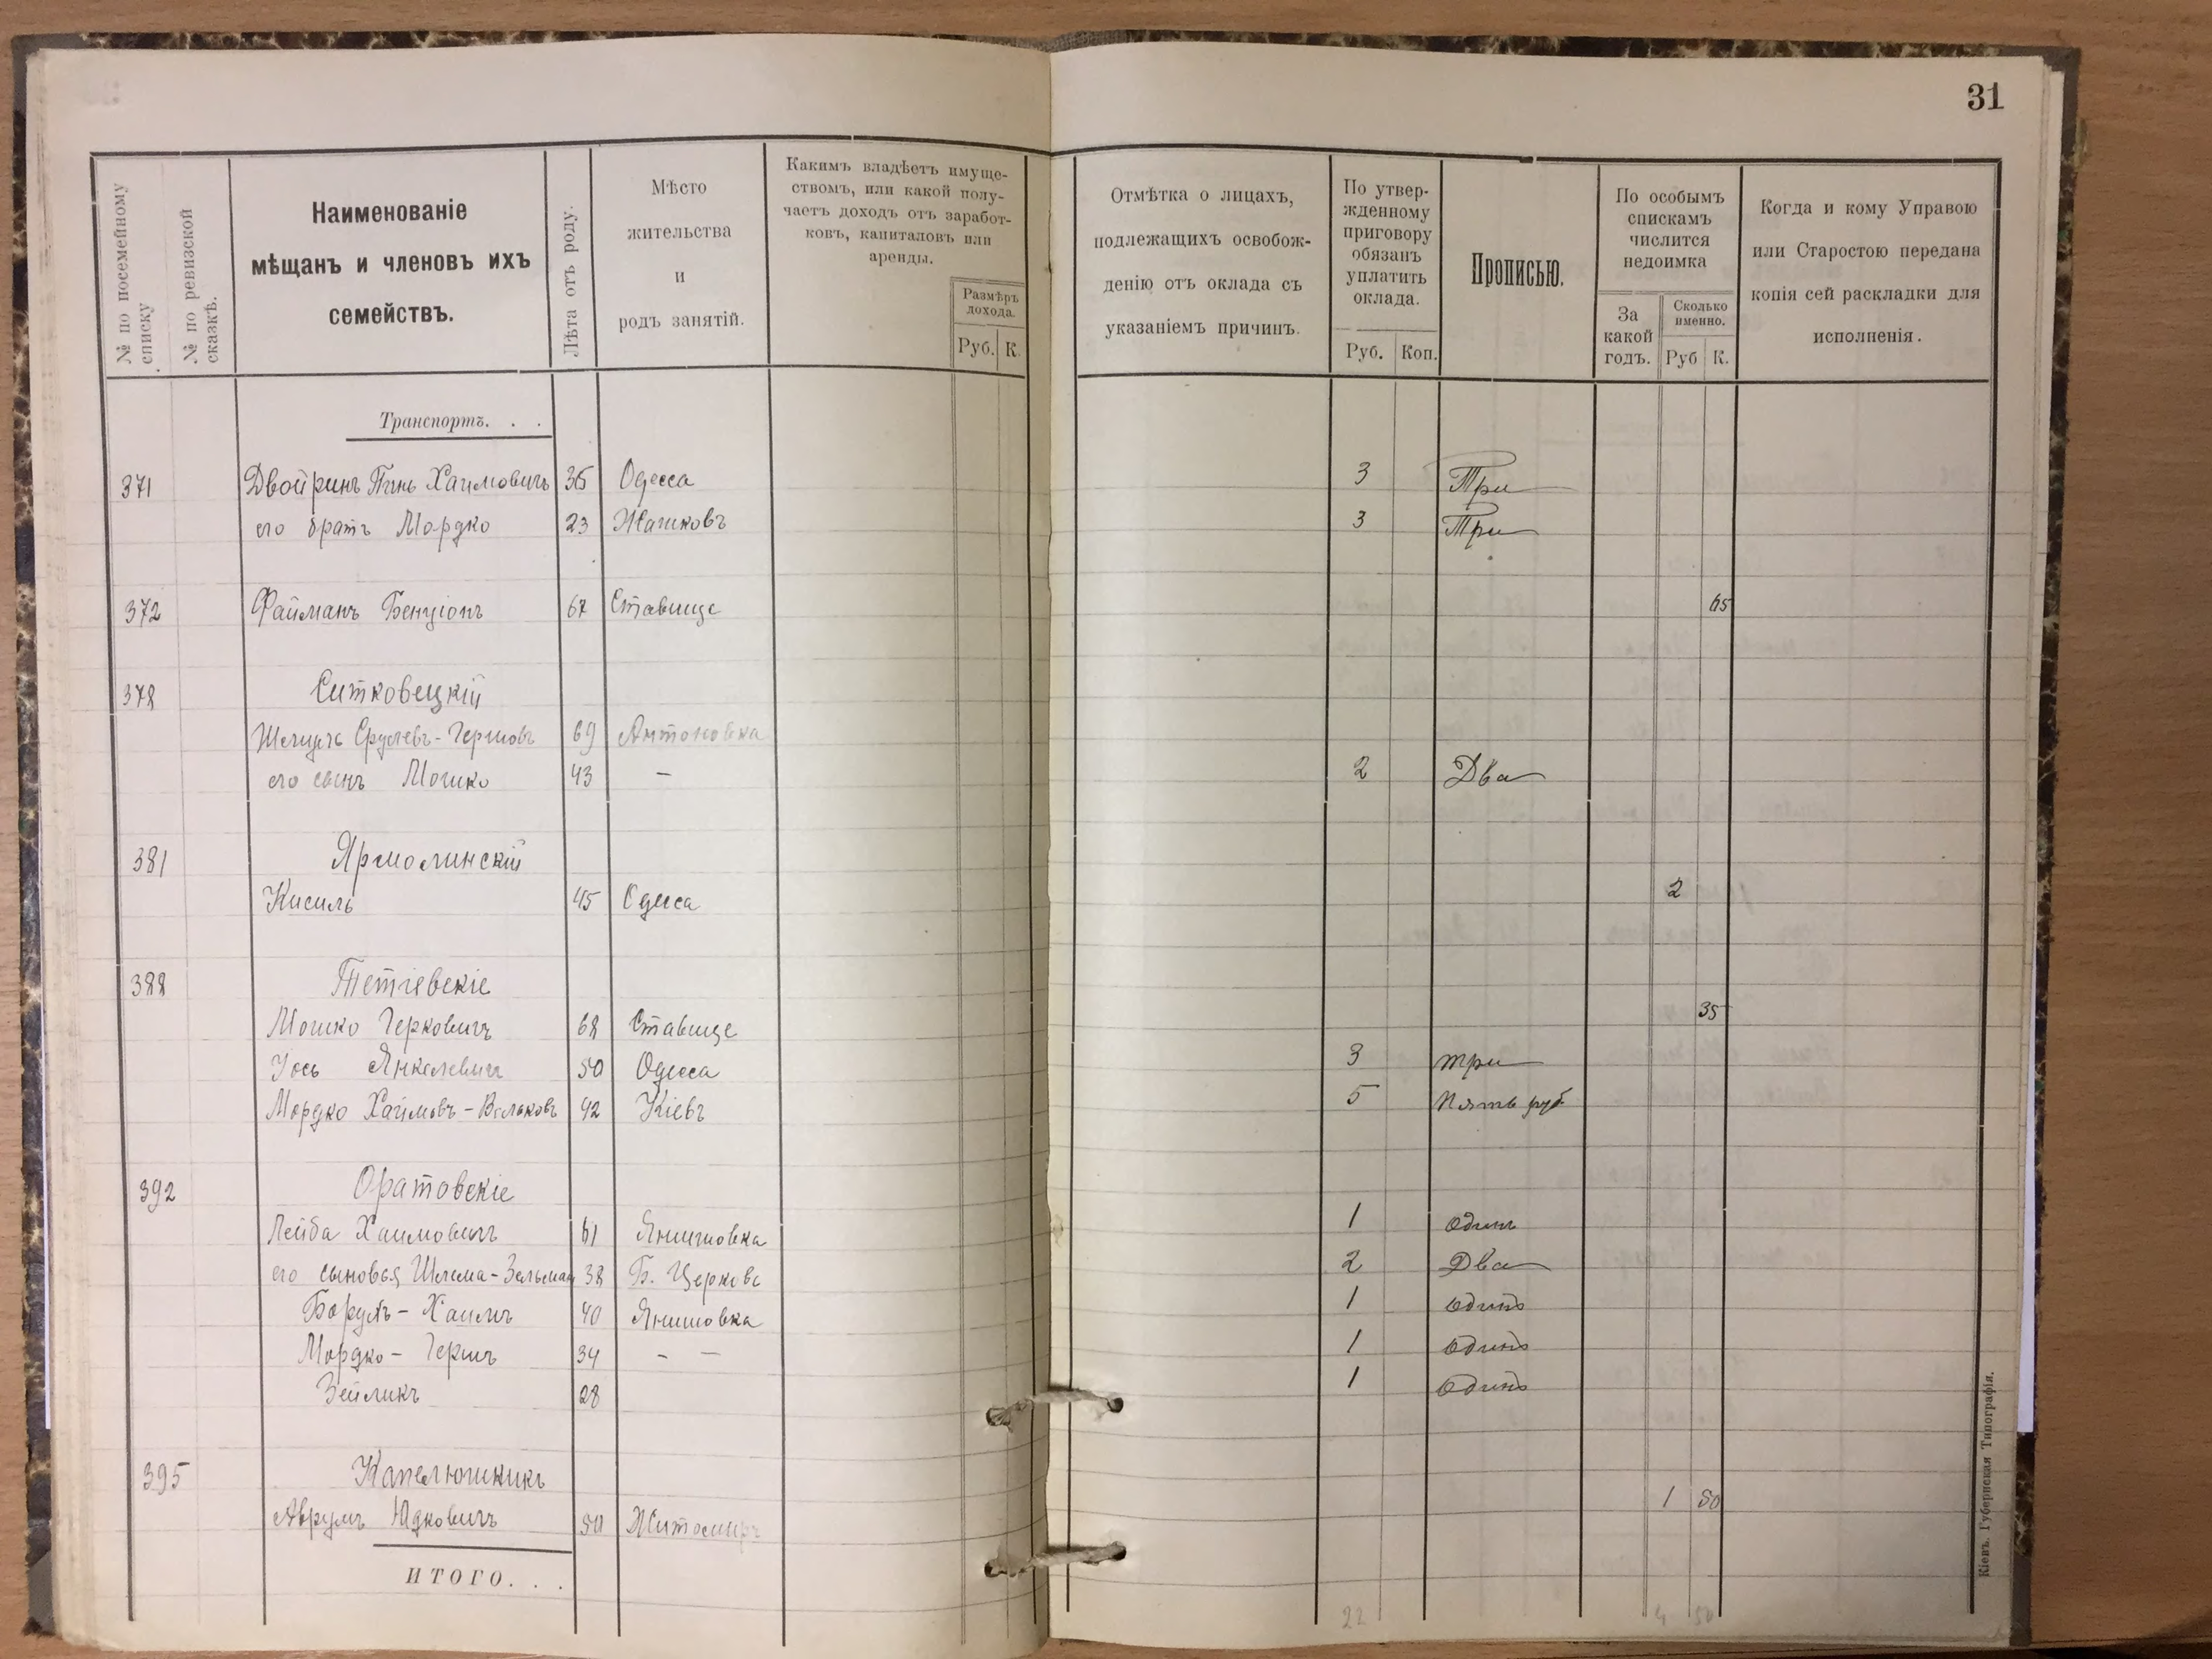 31
№ по посемейному списку
№ по ревизской сказкѣ.
Наименованіе
мѣщанъ и членовъ ихъ
семействъ.
Лѣта отъ роду.
Мѣсто
жительства
и
родъ занятій.
Какимъ владѣетъ имуще-
ствомъ, или какой полу-
чаетъ доходъ отъ заработ-
ковъ, капиталовъ или
аренды.
Размѣръ
дохода.
Руб. К.
Отмѣтка о лицахъ,
подлежащихъ освобож-
денію отъ оклада съ
указаніемъ причинъ.
По утвер-
жденному
приговору
обязанъ
уплатить
оклада.
Руб. Коп.
Прописью.
По особымъ
спискамъ
числится
недоимка
За
какой
годъ.
Сколько
именно.
Руб К.
Когда и кому Управою
или Старостою передана
копія сей раскладки для
исполненія.
Транспортъ. . .
371 Двойринъ Пинь Хаимовичъ 36 Одесса 3 Три
его братъ Мордко 23 Жашковъ 3 Три
372 Файманъ Бенціонъ 67 Ставище 65
378 Ситковецкій
Срулевъ-Гершовъ 69 Антоновка
его сынъ Мошко 43 — 2 Два
381 Ярмолинскій
Кисиль 45 Одесса 2
388 Тетіевскіе
Мошко Герковичъ 68 Ставище 35
Іось Янкелевичъ 50 Одесса 3 три
Мордко Хаимовъ-Вольковъ 42 Кіевъ 5 Пять руб
392 Оратовскіе
Лейба Хаимовичъ 61 Янишовка 1 одинъ
его сыновья Шлема-Зельман 38 Б. Церковь 2 Два
Борухъ-Хаимъ 40 Янишовка 1 одинъ
Мордко-Гершъ 34 — — 1 одинъ
Зейликъ 28 1 одинъ
395 Капелюшникъ
Аврумъ Юдковичъ 50 Житомиръ 1 50
ИТОГО. . .
22 4 50
Кіевъ. Губернская Типографія.